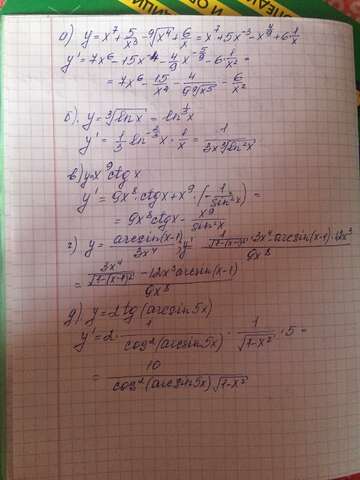 а) y = x⁷ + 5/x³ - ⁹√x⁴ + 6/x = x⁷ + 5x⁻³ - x^(4/9) + 6·1/x
y' = 7x⁶ - 15x⁻⁴ - 4/9 x^(-5/9) - 6·1/x² =
= 7x⁶ - 15/x⁴ - 4/(9 ⁹√x⁵) - 6/x²
б). y = ³√(ln x) = ln^(1/3) x
y' = 1/3 ln^(-2/3) x · 1/x = 1/(3x ³√(ln² x))
в) y = x⁹ctg x
y' = 9x⁸ · ctg x + x⁹ · (-1/sin² x) =
= 9x⁸ctg x - x⁹/sin² x
г) y = arcsin(x-1)/3x⁴ y' = (1/√(1-(x-1)²) · 3x⁴ - arcsin(x-1)·12x³)/9x⁸
= (3x⁴/√(1-(x-1)²) - 12x³arcsin(x-1))/9x⁸
д) y = 2tg(arcsin 5x)
y' = 2 · 1/cos²(arcsin 5x) · 1/√(1-x²) · 5 =
= 10/(cos²(arcsin 5x)√(1-x²))